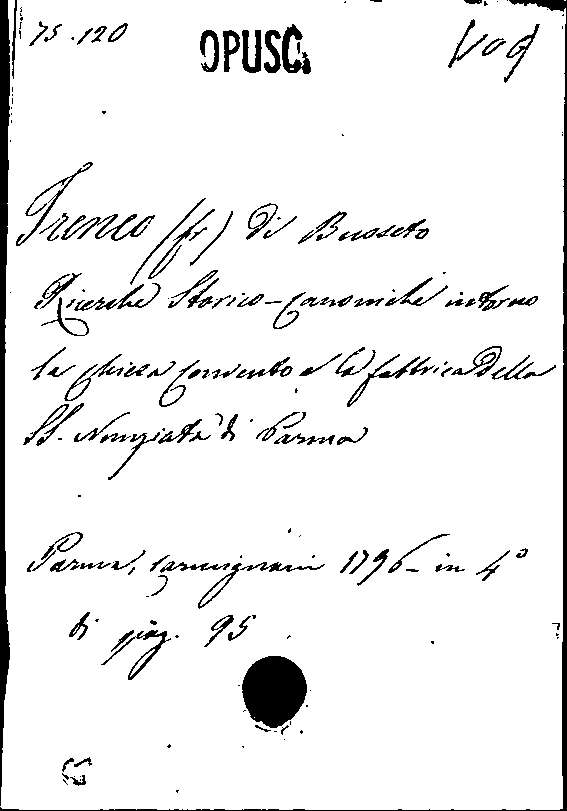 75.120 OPUSC. (Vog)
Ireneo (fr) di Busseto
Ricerche Storico-canoniche intorno
la chiesa convento e la fabbrica della
SS. Nunziata di Parma
Parma, Carmignani 1796 - in 4°
di pag. 95